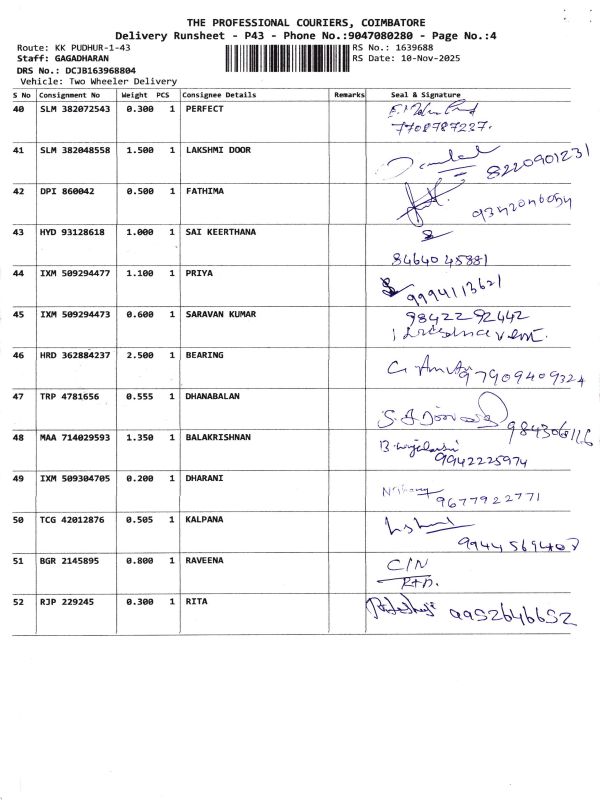 THE PROFESSIONAL COURIERS, COIMBATORE
Delivery Runsheet - P43 - Phone No.:9047080280 - Page No.:4
Route: KK PUDHUR-1-43 RS No.: 1639688
Staff: GAGADHARAN RS Date: 10-Nov-2025
DRS No.: DCJB163968804
Vehicle: Two Wheeler Delivery
S No Consignment No Weight PCS Consignee Details Remarks Seal & Signature
40 SLM 382072543 0.300 1 PERFECT
7708787237.
41 SLM 382048558 1.500 1 LAKSHMI DOOR 8220901231
42 DPI 860042 0.500 1 FATHIMA
43 HYD 93128618 1.000 1 SAI KEERTHANA
8464045881
44 IXM 509294477 1.100 1 PRIYA
9994113621
45 IXM 509294473 0.600 1 SARAVAN KUMAR 98422 92442
46 HRD 362884237 2.500 1 BEARING
97909409324
47 TRP 4781656 0.555 1 DHANABALAN
48 MAA 714029593 1.350 1 BALAKRISHNAN
9942225974
49 IXM 509304705 0.200 1 DHARANI
9677922771
50 TCG 42012876 0.505 1 KALPANA
9944569408
51 BGR 2145895 0.800 1 RAVEENA C/N
52 RJP 229245 0.300 1 RITA 9952646652